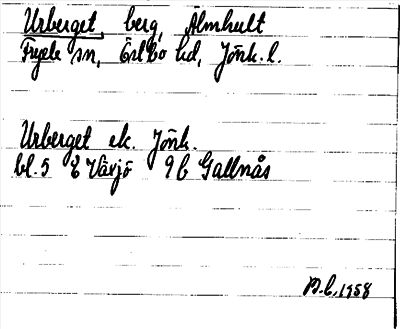 Urberget, berg, Älmhult
Fryele sn, Östbo hd, Jönk. l.
Urberget ek. Jönk.
bl. 5 E Värjö 9 b Gallnås
1958